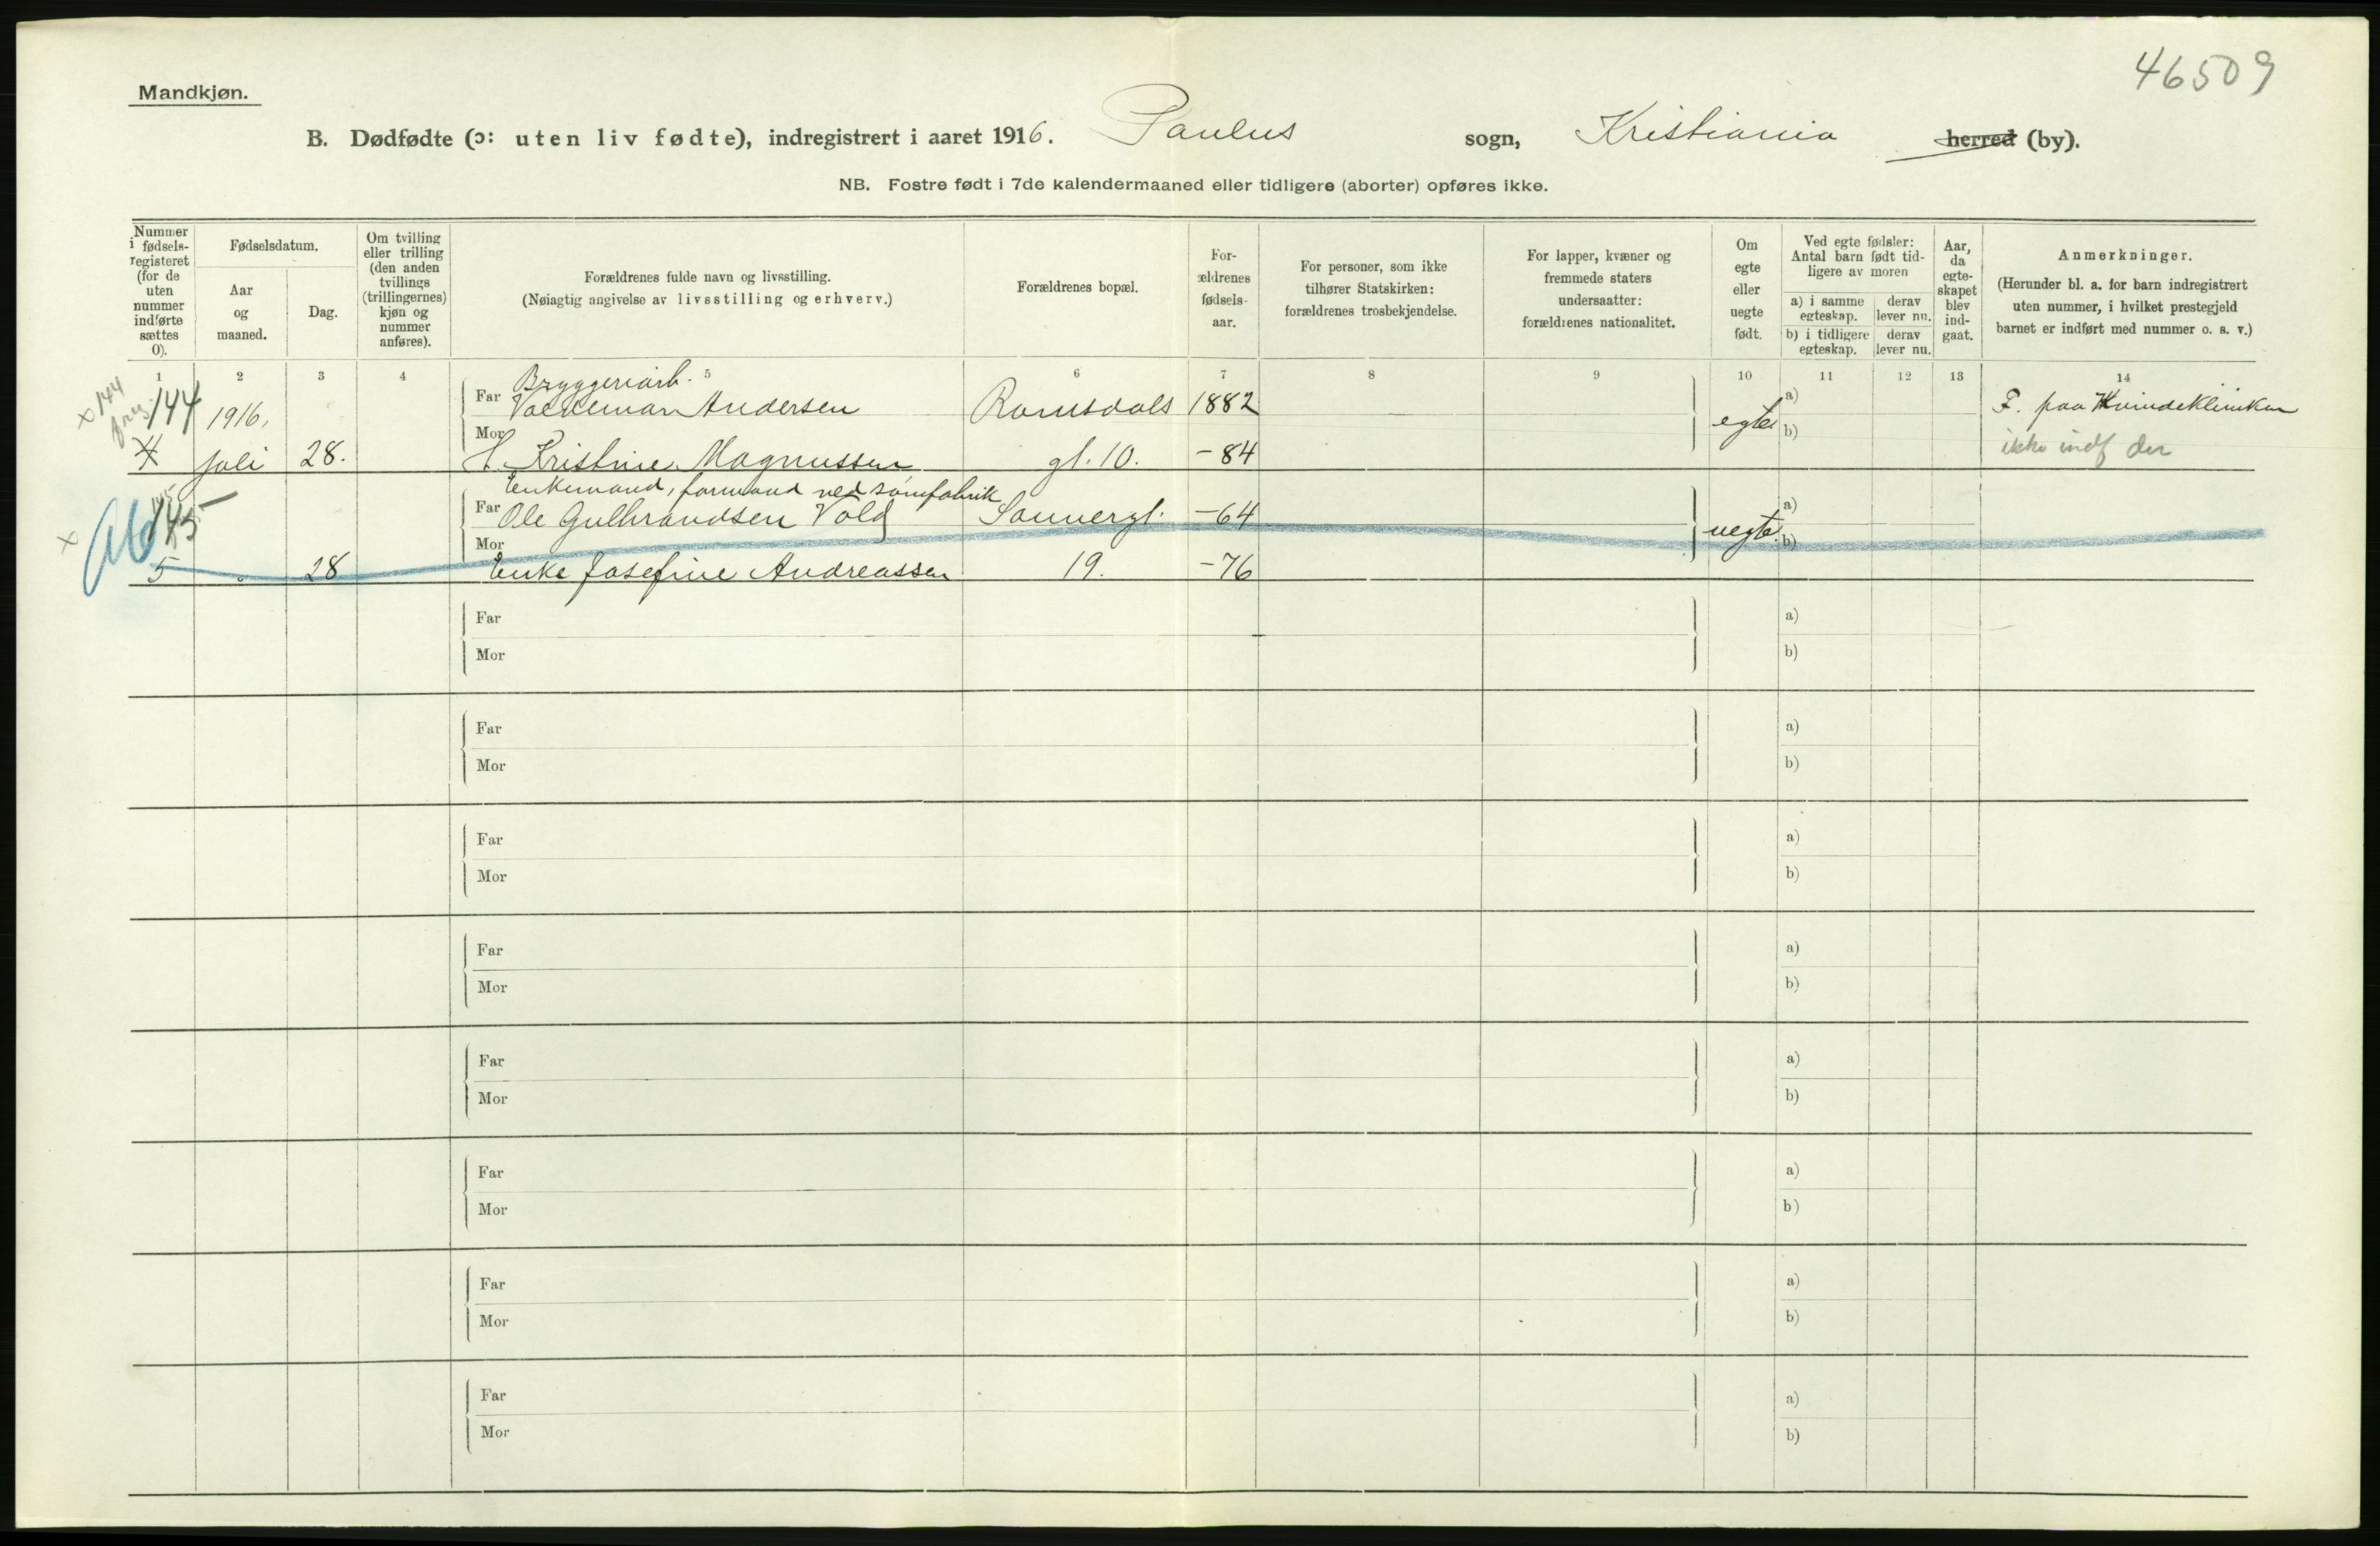 46509
Mandkjøn.
B. Dødfødte (ɔ: uten liv fødte), indregistrert i aaret 1916. Paulus sogn, Kristiania herred (by).
NB. Fostre født i 7de kalendermaaned eller tidligere (aborter) opføres ikke.
Nummer i fødselsregisteret (for de uten nummer indførte sættes 0).
Fødselsdatum.
Aar og maaned.
Dag.
Om tvilling eller trilling (den anden tvillings (trillingernes) kjøn og nummer anføres).
Forældrenes fulde navn og livsstilling.
(Nøiagtig angivelse av livsstilling og erhverv.)
Forældrenes bopæl.
Forældrenes fødselsaar.
For personer, som ikke tilhører Statskirken: forældrenes trosbekjendelse.
For lapper, kvæner og fremmede staters undersaatter: forældrenes nationalitet.
Om egte eller uegte født.
Ved egte fødsler: Antal barn født tidligere av moren
a) i samme egteskap.
derav lever nu.
b) i tidligere egteskap.
derav lever nu.
Aar, da egteskapet blev indgaat.
Anmerkninger.
(Herunder bl. a. for barn indregistrert uten nummer, i hvilket prestegjeld barnet er indført med nummer o. s. v.)
1 2 3 4 5 6 7 8 9 10 11 12 13 14
x 144
144 1916,
Bryggeriarb.
Far Valdemar Andersen Romsdals 1882 a) F. paa Kvindekliniken
egte b)
Mor
4 juli 28. H. Kristine Magnussen gt. 10. -84 ikke indf der
Enkemand, formand ved sømfabrik
x 145 Far Ole Gulbrandsen Vold Sannergt. -64 a)
uegte b)
Mor
5 " 28 Enke Josefine Andreassen 19. -76
Far a)
Mor b)
Far a)
Mor b)
Far a)
Mor b)
Far a)
Mor b)
Far a)
Mor b)
Far a)
Mor b)
Far a)
Mor b)
Far a)
Mor b)